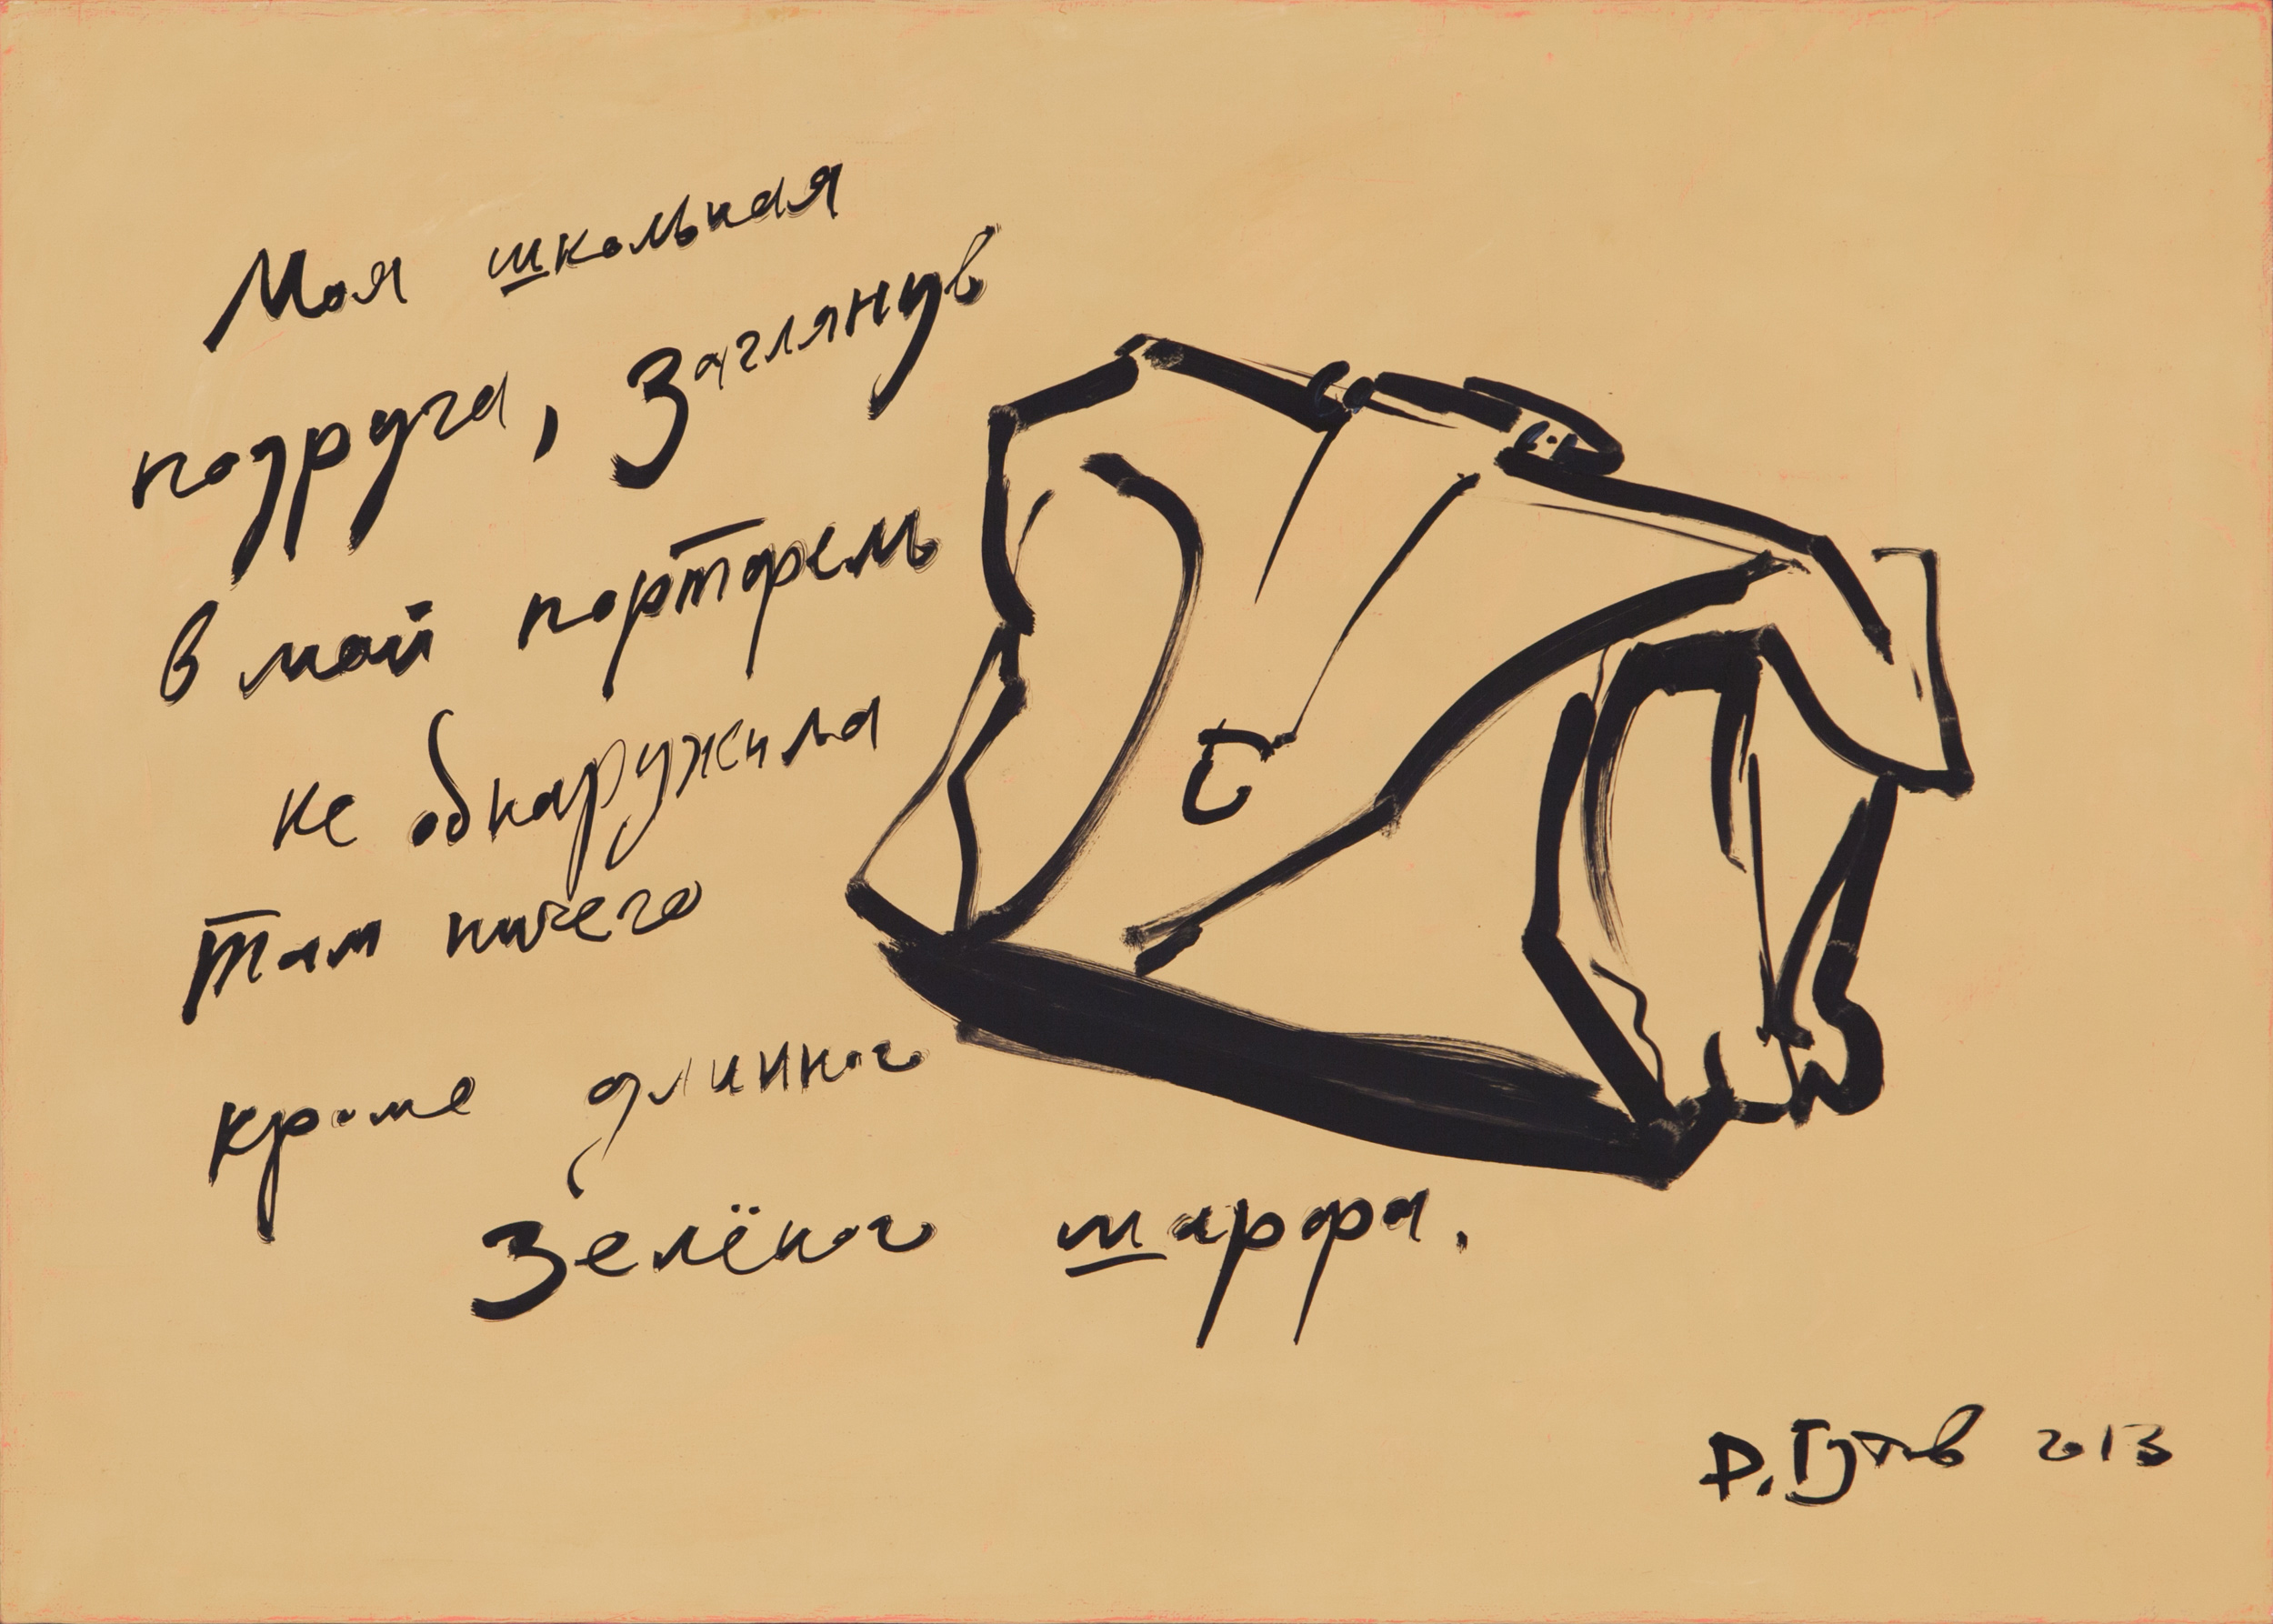 Моя школьная
подруга, Заглянув
в мой портфель
не обнаружила
там ничего
кроме длинного
Зелёного шарфа.
Д. Гутов 2013